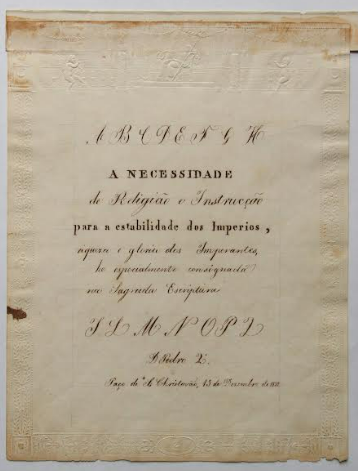 A B C D E F G H
A NECESSIDADE
de Religião e Instrucção
para a estabilidade dos Imperios,
riqueza e gloria dos Imperantes,
he especialmente consignada
na Sagrada Escriptura
I L M N O P Q
D. Pedro 2.º
Paço de S. Christovão, 13 de Dezembro de